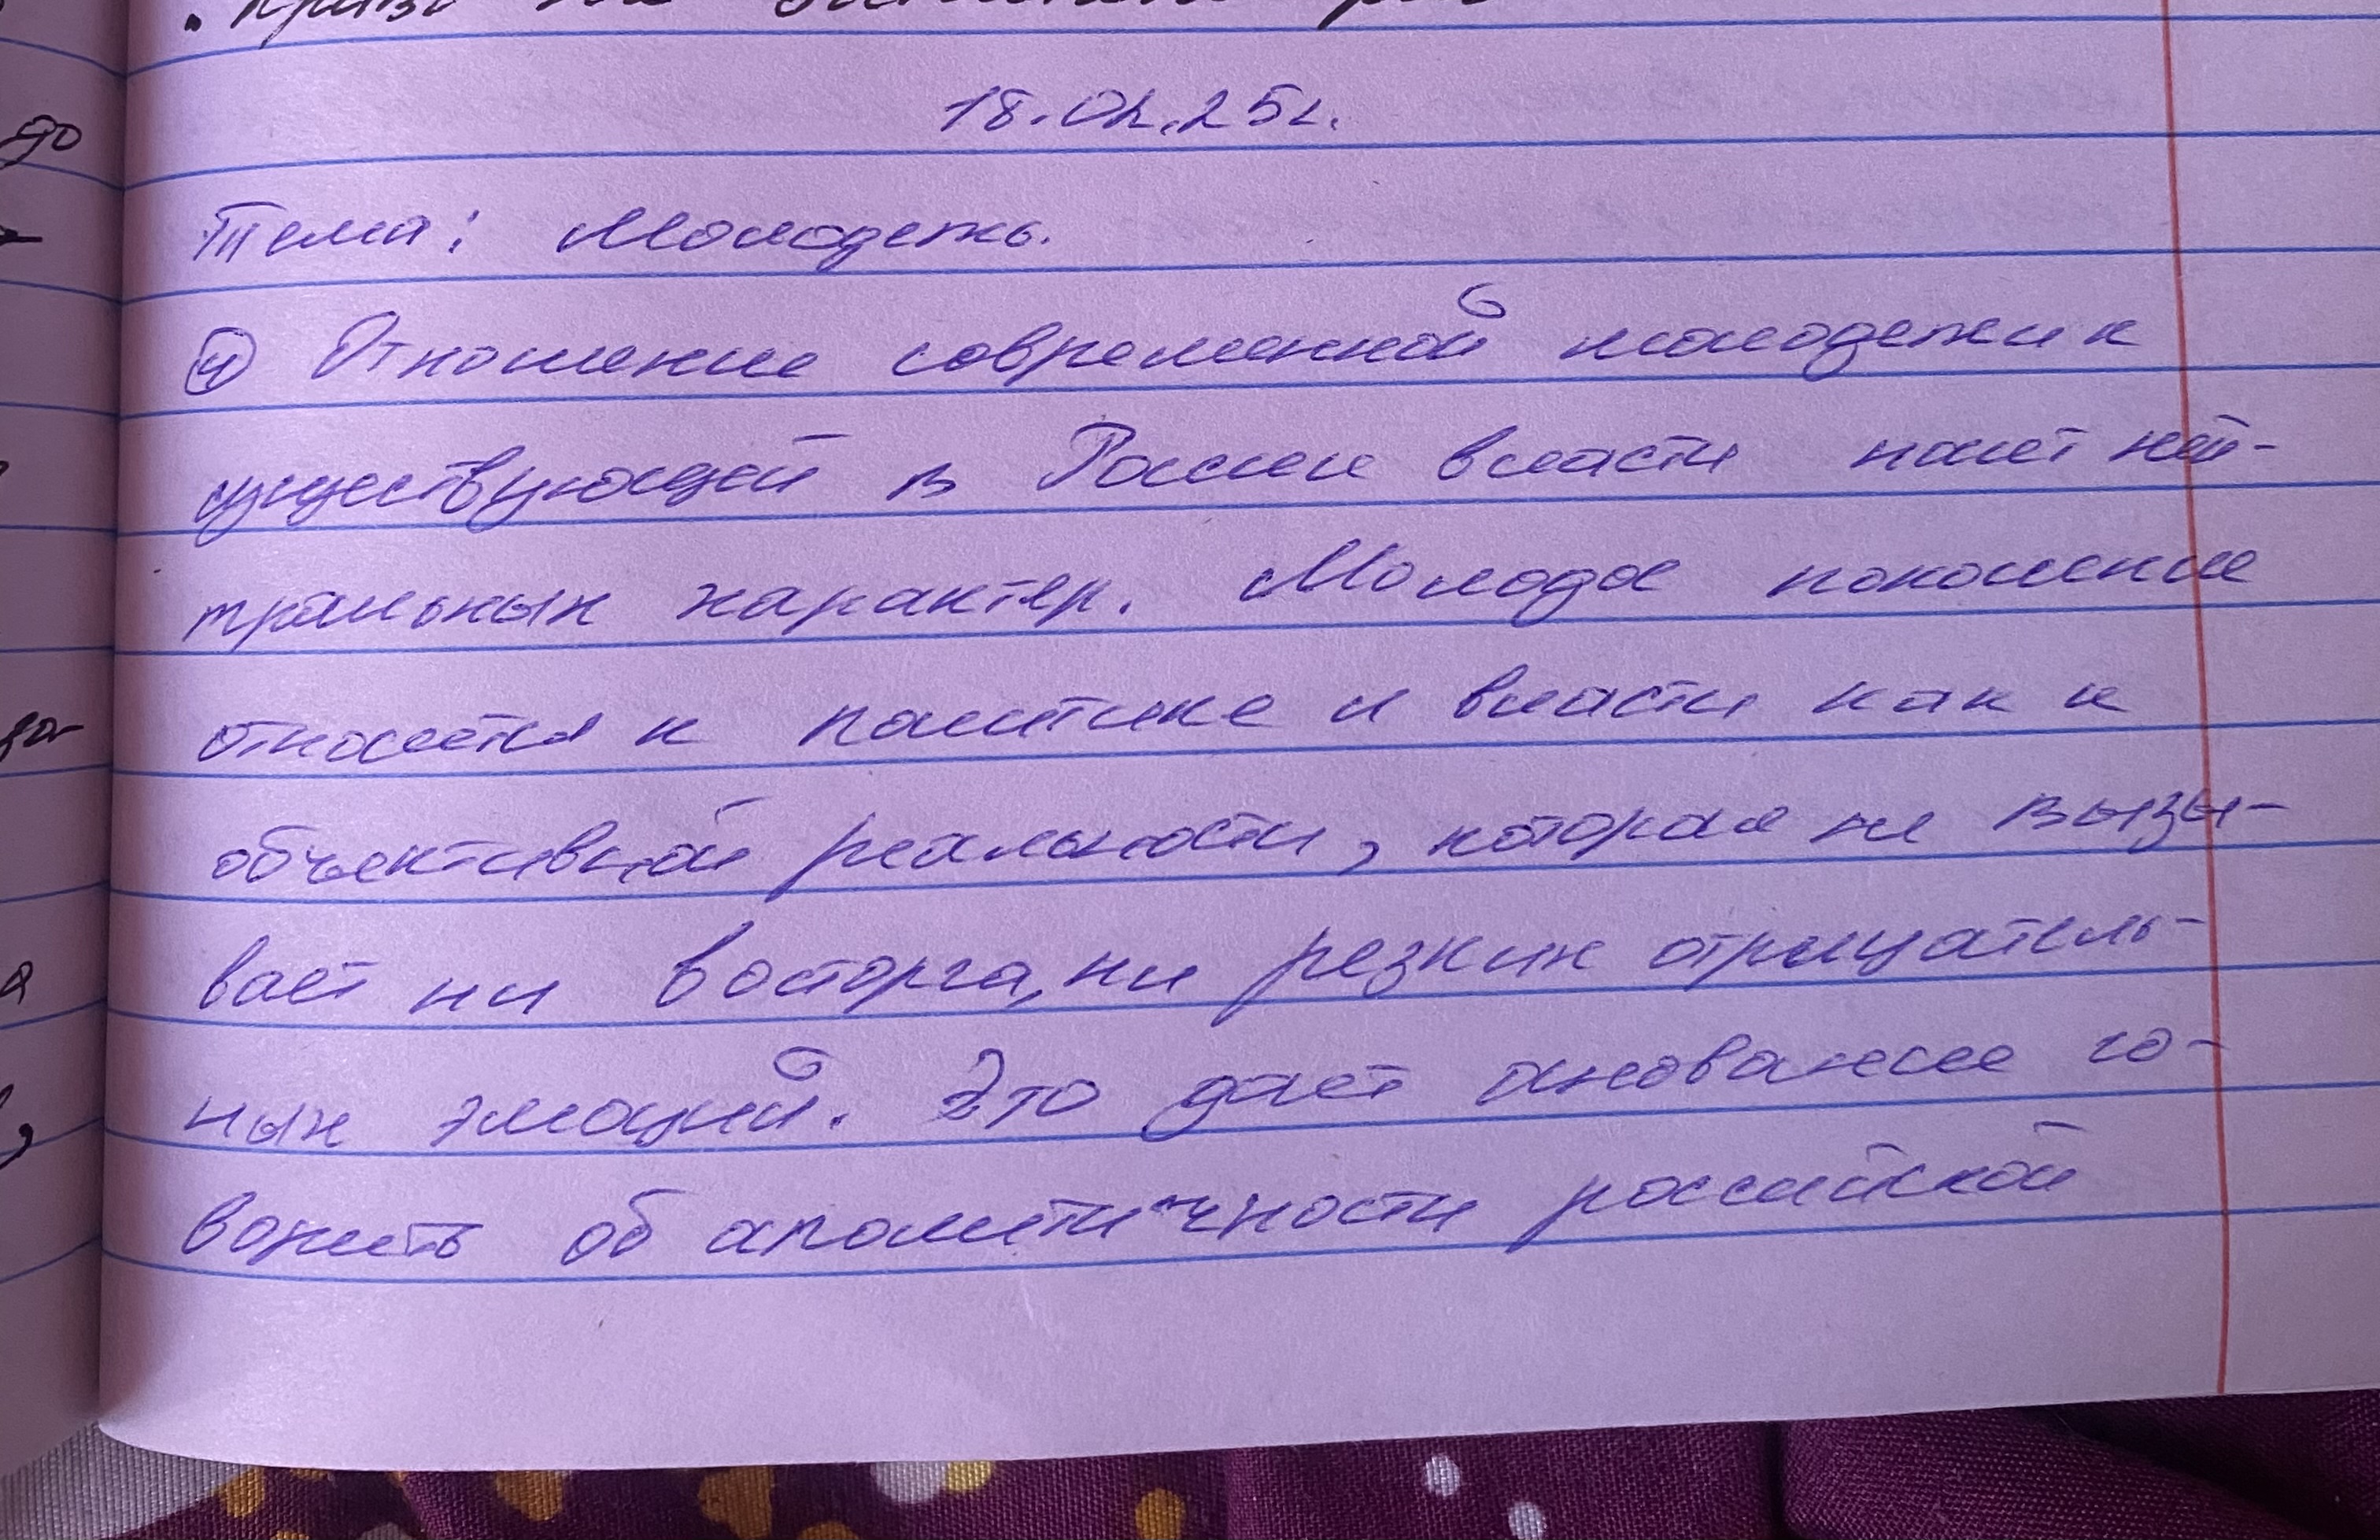 18.02.25г.
Тема: Молодежь.
④ Отношение современной молодежи к
существующей в России власти носит ней-
тральных характер. Молодое поколение
относится к политике и власти как к
объективной реальности, которая не вызы-
вает ни восторга, ни резких отрицатель-
ных эмоций. Это дает основание го-
ворить об аполитичности российской